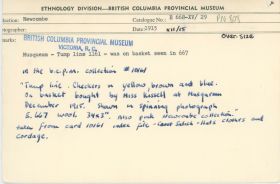 ETHNOLOGY DIVISION—BRITISH COLUMBIA PROVINCIAL MUSEUM
Newcombe Catalogue No.: E 668-XV/ 29 PN 805
Date: 1915 xii/15 OVER SIZE
BRITISH COLUMBIA PROVINCIAL MUSEUM
VICTORIA, B.C.
Musqueam - Tump line 1161 - was on basket seen in 667
in the B.C.P.M. collection # 10161
"Tump line. Checkers in yellow, brown and blue.
On basket bought by Miss Kissell at Musqueam
December 1915. Shown in spinning photograph
E.667 wool. 34x3". Also part Newcombe collection."
taken from card 10161 index file - Coast Salish - Hats clothes and
cordage.